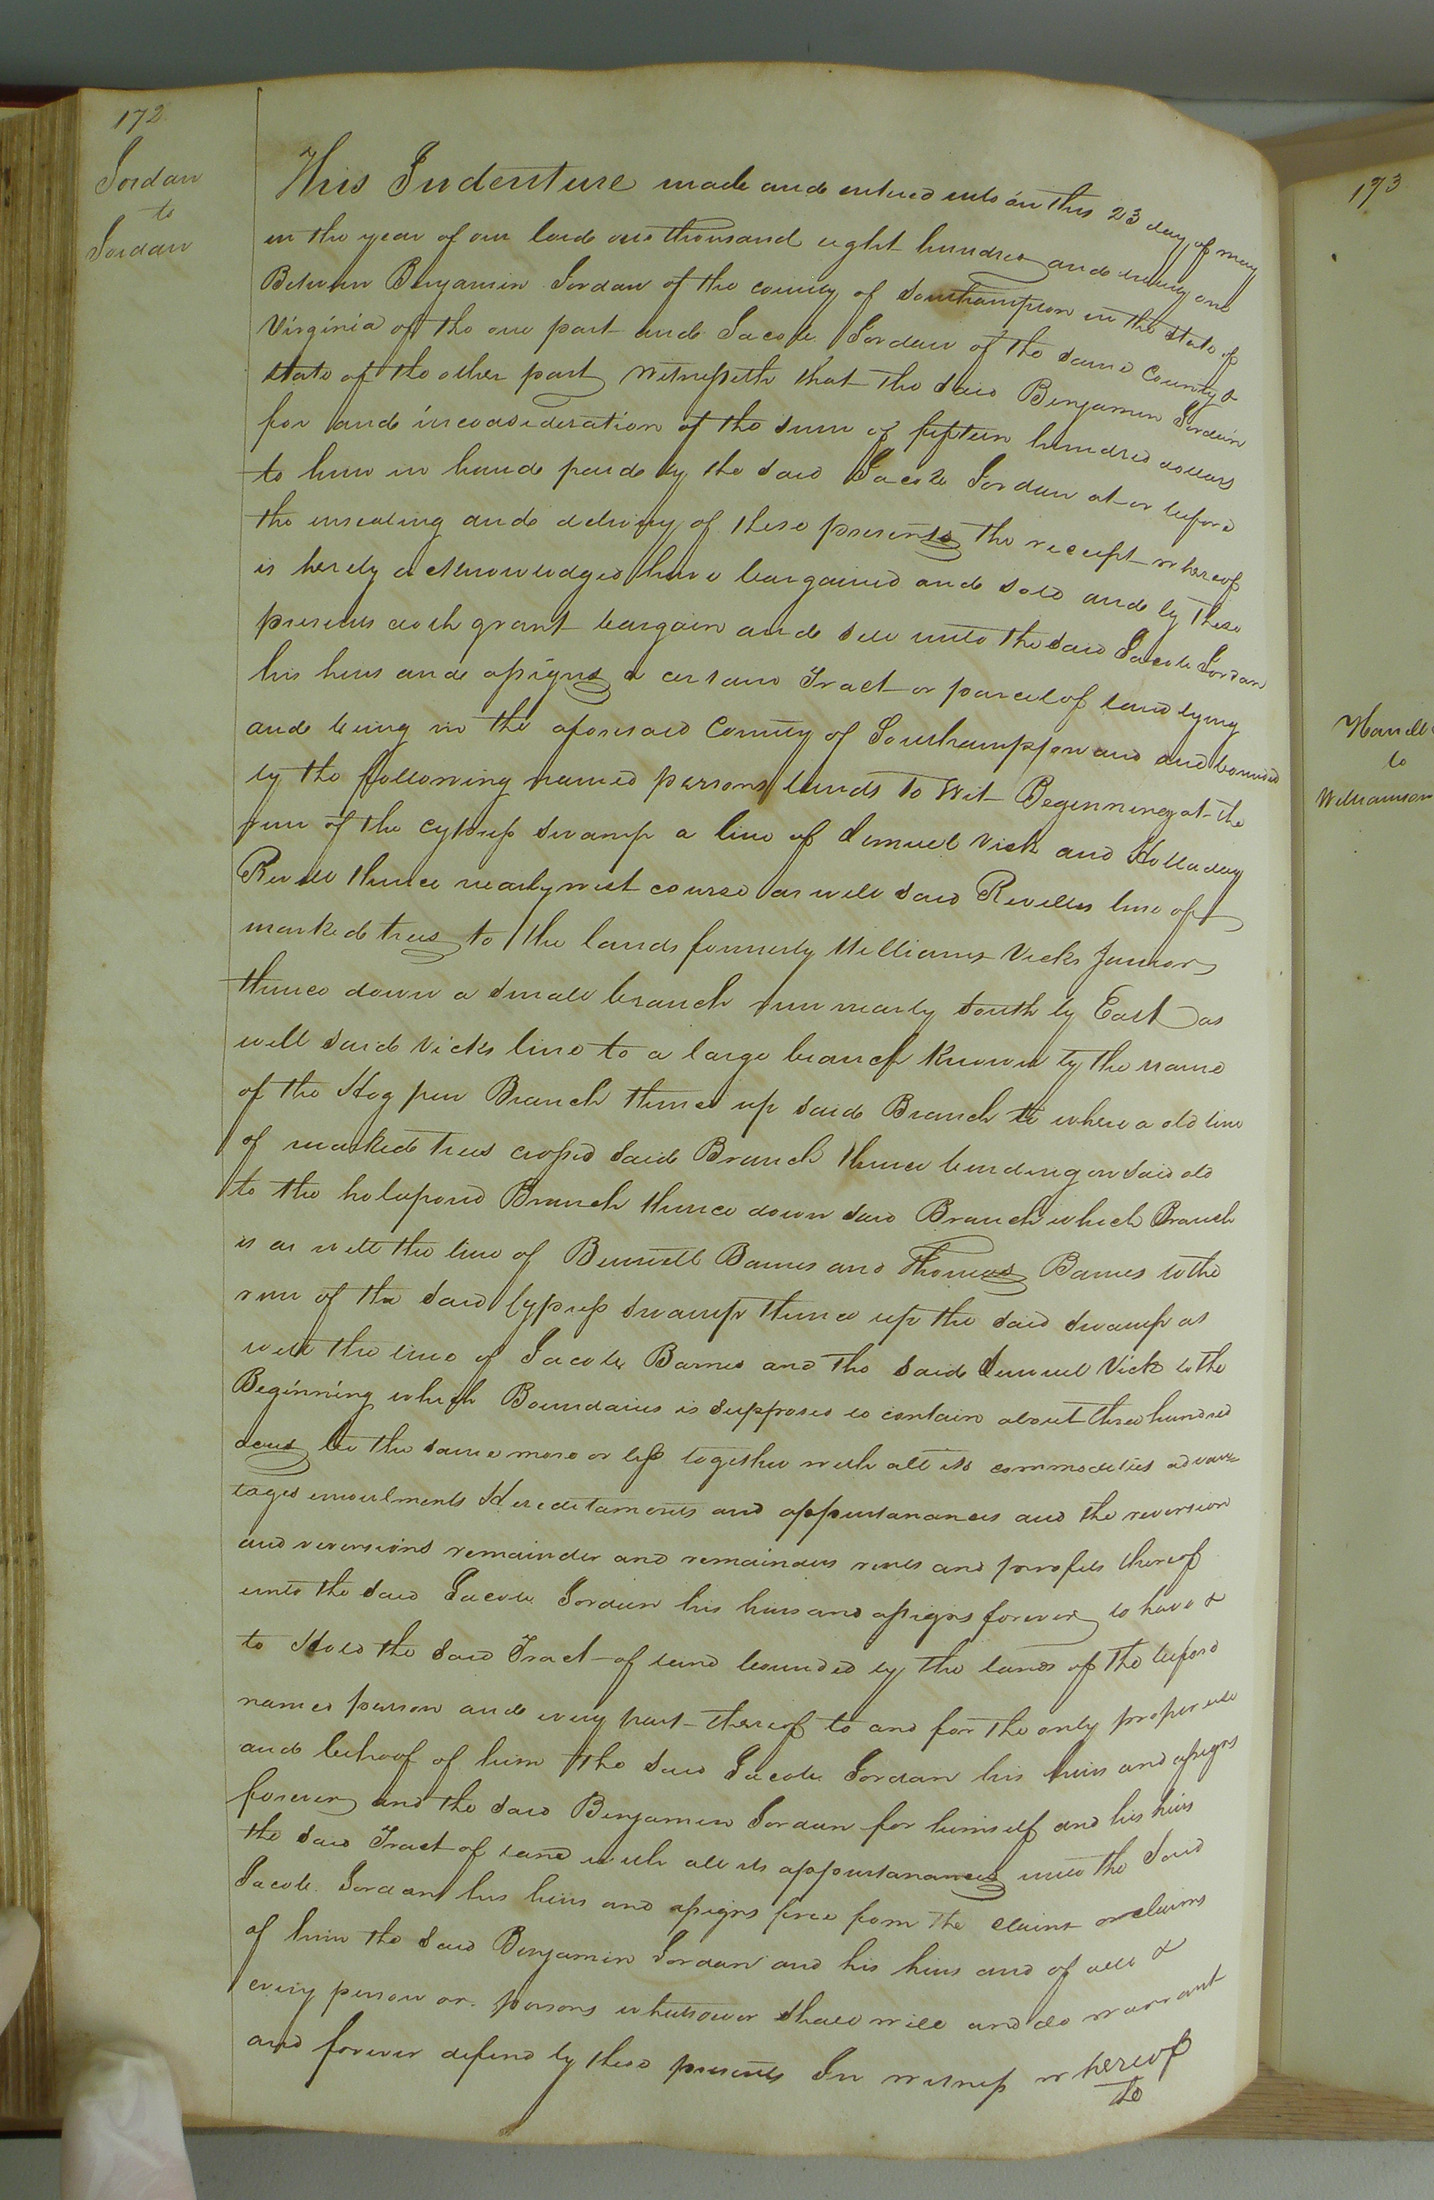 172
Jordan
to
Jordan
This Indenture made and entered into on this 23 day of may
in the year of our lord one thousand eight hundred and twenty one
Between Benjamin Jordan of the county of Southampton in the state of
Virginia of the one part and Jacob Jordan of the same County &
state of the other part Witnesseth that the said Benjamin Jordan
for and inconsideration of the sum of fifteen hundred dollars
to him in hand paid by the said Jacob Jordan at or before
the ensealing and delivery of these presents the receipt whereof
is hereby acknowledged have bargained and sold and by these
presents doth grant bargain and sell unto the said Jacob Jordan
his heirs and assigns a certain Tract or parcel of land lying
and being in the aforesaid County of Southampton and and bounded
by the following named persons lands to Wit Beginning at the
run of the cypress swamp a line of Lemuel Vick and Holladay
Revell thence nearly west course as well said Revells line of
marked trees to the lands formerly Williams Vicks Junior
thence down a small branch run nearly South by East as
well said Vicks line to a large branch known by the name
of the Hog pen Branch thence up said Branch to where a old line
of marked trees cross'd said Branch thence bending on said old
to the holepond Branch thence down said Branch which Branch
is as well the line of Bennett Barnes and Thomas Barnes to the
run of the said Cypress swamp thence up the said swamp as
well the line of Jacob Barnes and the said Lemuel Vick to the
Beginning which Boundaries is supposed to contain about three hundred
acres be the same more or less together with all its commodities advan-
tages emoulments Hereditaments and appurtanances and the reversion
and reversions remainder and remainders rents and profits thereof
unto the said Jacob Jordan his heirs and assigns forever to have &
to Hold the said Tract of land bounded by the lands of the before
named person and every part thereof to and for the only proper use
and behoof of him the said Jacob Jordan his heirs and assigns
forever and the said Benjamin Jordan for himself and his heirs
the said Tract of land with all its appurtanances unto the said
Jacob Jordan his heirs and assigns free from the claims or claims
of him the said Benjamin Jordan and his heirs and of all &
every person or persons whatsoever shall will and do warrant
and forever defend by these presents In witness whereof
To
173
Harrell
to
Williamson